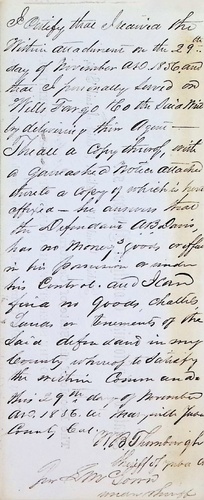 I Certify that I received the
within attachment on the 29th
day of November AD. 1856, and
that I personally served on
Wells Fargo & Co the said Writ
by delivering their Agent –
Thall a Copy thereof, with
a garnashee Notice attached
thereto a copy of which is here
affixed – he answers that
the Defendant AB Davis,
has no Moneys goods or effects
in his possession or under
his Control. and I can
find no goods chattles
Lands or tenements of the
Said defendant in my
County whereof to Satisfy
the within Command
this 29th day of November
AD. 1856. at
County Cal
Thornburgh
Sheriff of